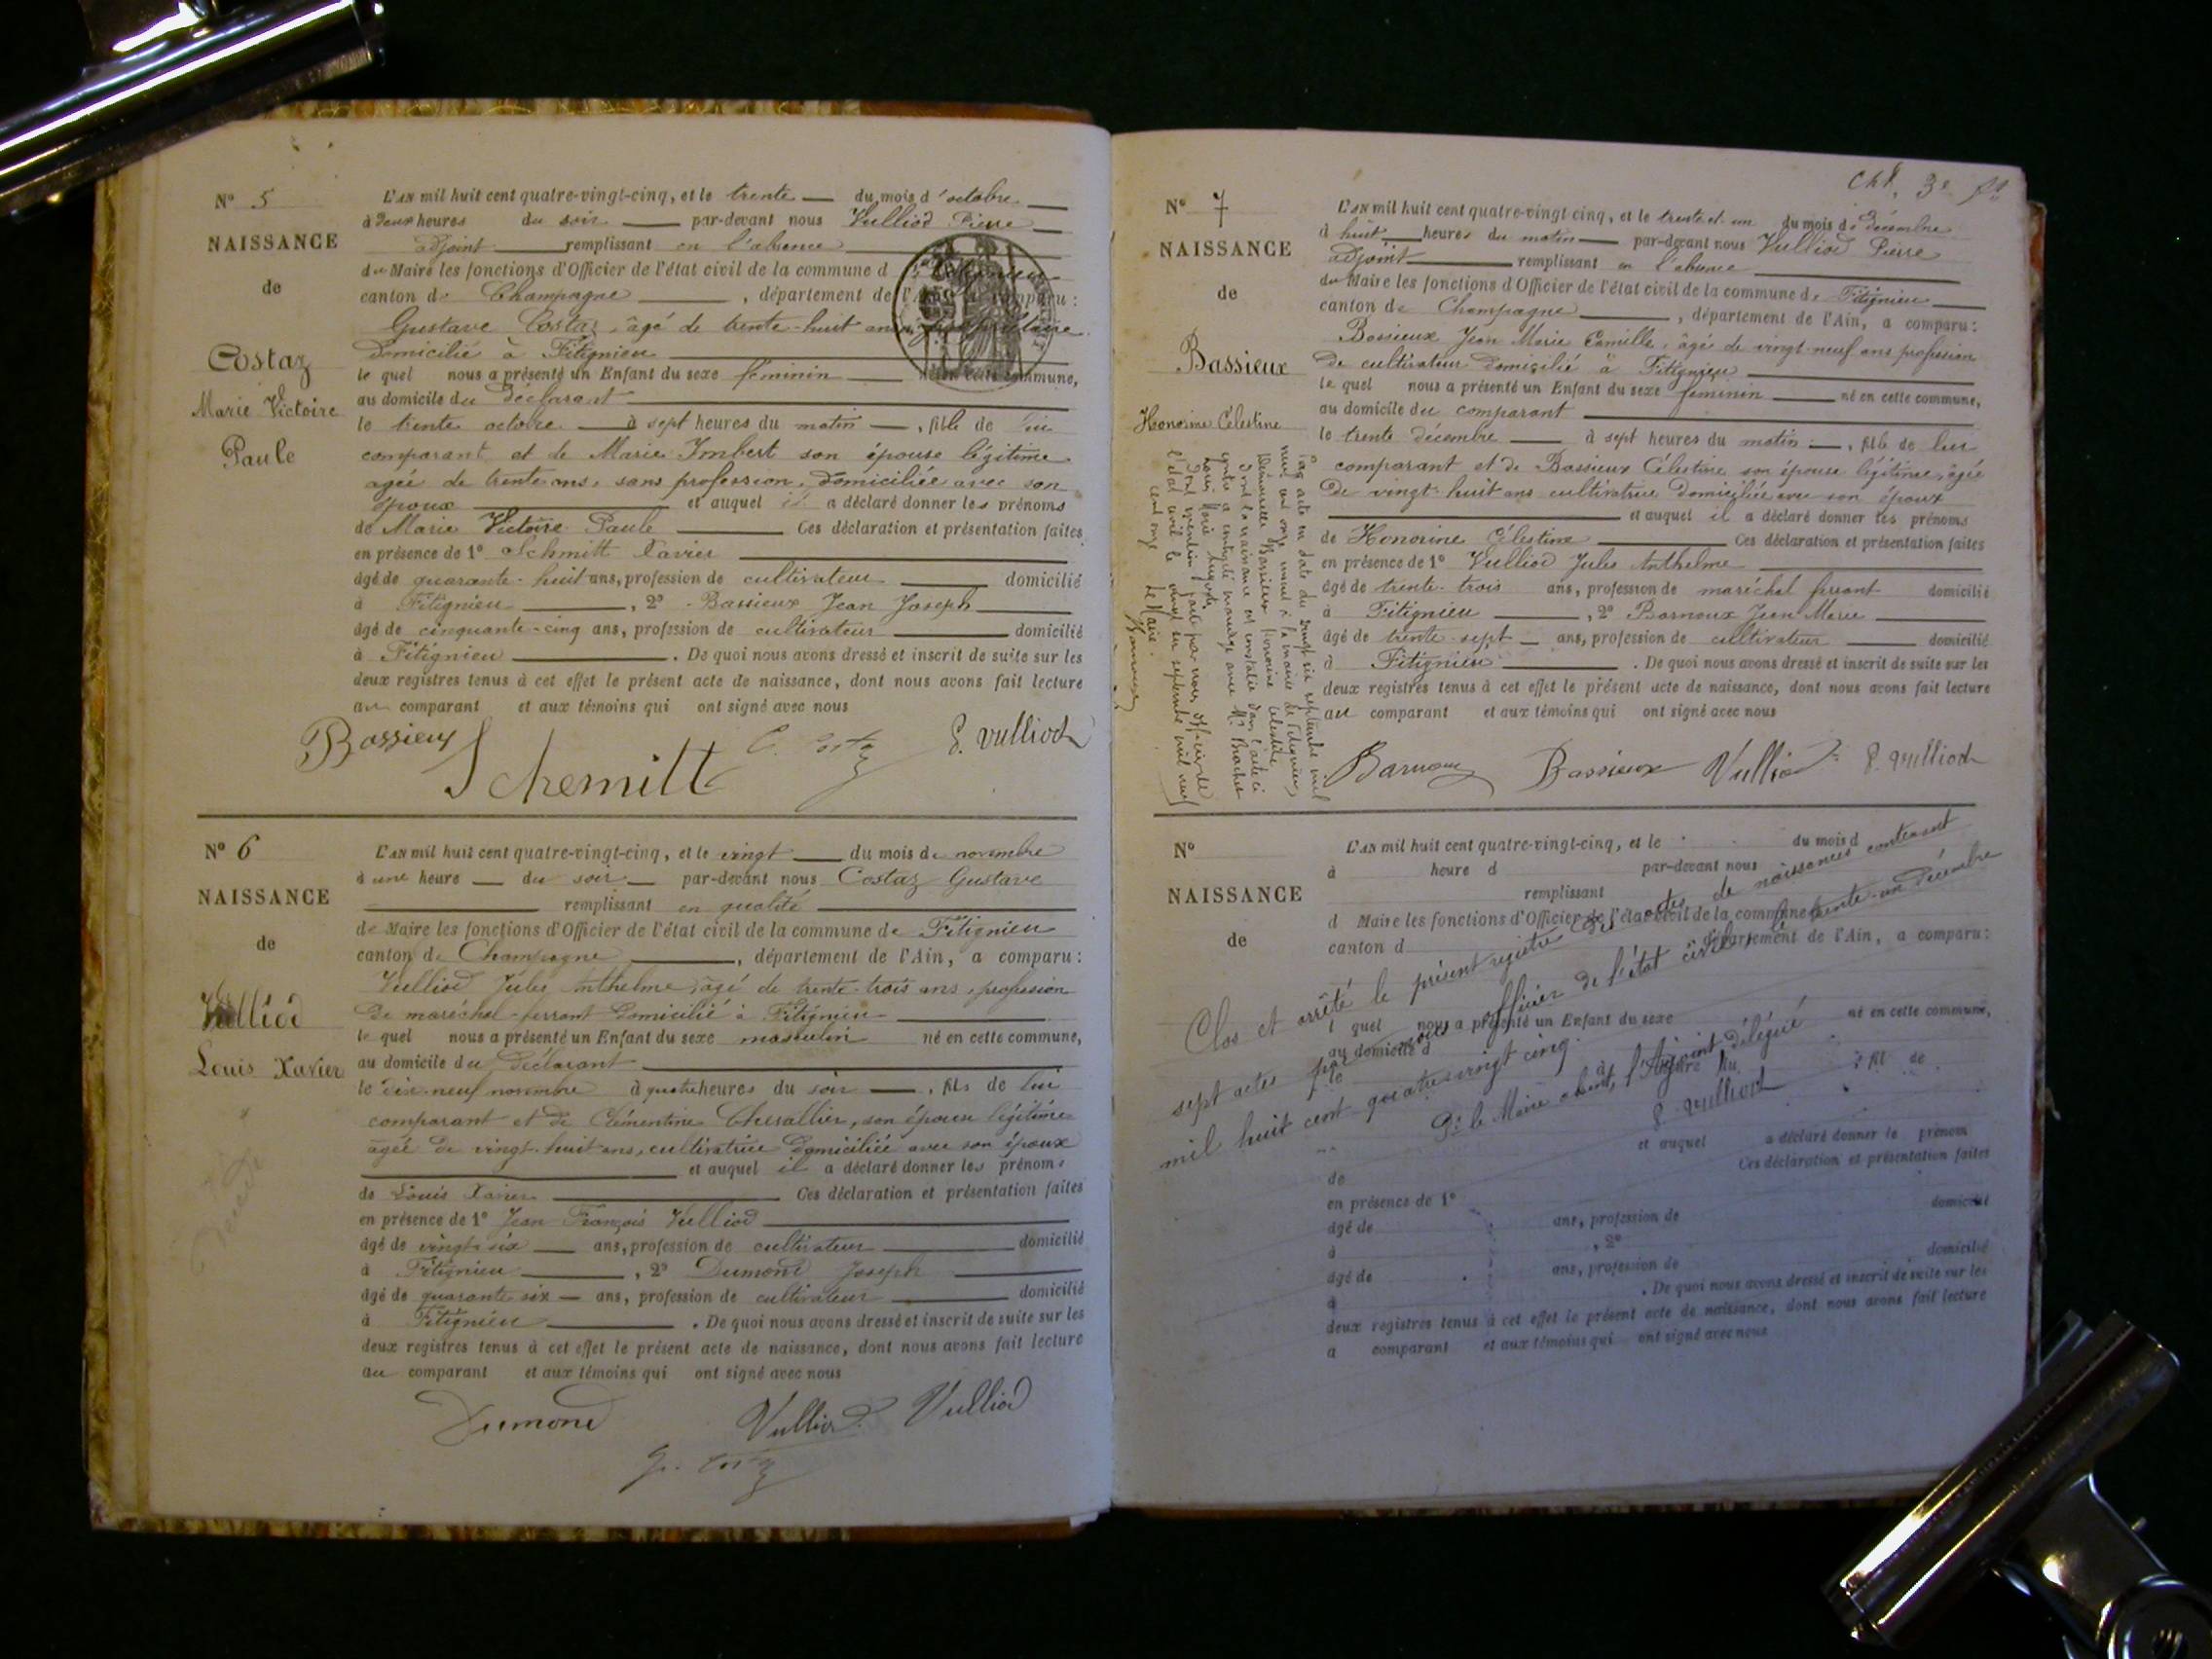 N° 5
NAISSANCE
de
Costaz
Marie Victoire
Paule
L'AN mil huit cent quatre-vingt-cinq, et le trente du mois d'octobre
à deux heures du soir par-devant nous Vulliod Pierre
adjoint remplissant en l'absence
du Maire les fonctions d'Officier de l'état civil de la commune d
canton de Champagne, département de l'Ain, a comparu :
Gustave Costaz, âgé de trente-huit ans, propriétaire
domicilié à Fitignieu
le quel nous a présenté un Enfant du sexe féminin né en cette commune,
au domicile du déclarant
le trente octobre à sept heures du matin, fille de lui
comparant et de Marie Imbert son épouse légitime
agée de trente ans, sans profession, domiciliée avec son
époux et auquel il a déclaré donner les prénoms
de Marie Victoire Paule Ces déclaration et présentation faites
en présence de 1° Schmitt Xavier
âgé de quarante-huit ans, profession de cultivateur domicilié
à Fitignieu, 2° Bassieux Jean Joseph
âgé de cinquante-cinq ans, profession de cultivateur domicilié
à Fitignieu. De quoi nous avons dressé et inscrit de suite sur les
deux registres tenus à cet effet le présent acte de naissance, dont nous avons fait lecture
au comparant et aux témoins qui ont signé avec nous
Bassieux Schemitt G. Costaz P. Vulliod
N° 6
NAISSANCE
de
Vulliod
Louis Xavier
L'AN mil huit cent quatre-vingt-cinq, et le vingt du mois de novembre
à une heure du soir par-devant nous Costaz Gustave
remplissant en qualité
de Maire les fonctions d'Officier de l'état civil de la commune de Fitignieu
canton de Champagne, département de l'Ain, a comparu :
Vulliod Jules Anthelme, âgé de trente-trois ans, profession
de maréchal-ferrant domicilié à Fitignieu
le quel nous a présenté un Enfant du sexe masculin né en cette commune,
au domicile du déclarant
le dix-neuf novembre à quatre heures du soir, fils de lui
comparant et de Clémentine Chevallier, son épouse légitime
agée de vingt-huit ans, cultivatrice domiciliée avec son époux
et auquel il a déclaré donner les prénoms
de Louis Xavier Ces déclaration et présentation faites
en présence de 1° Jean François Vulliod
âgé de vingt-six ans, profession de cultivateur domicilié
à Fitignieu, 2° Dumond Joseph
âgé de quarante six ans, profession de cultivateur domicilié
à Fitignieu. De quoi nous avons dressé et inscrit de suite sur les
deux registres tenus à cet effet le présent acte de naissance, dont nous avons fait lecture
au comparant et aux témoins qui ont signé avec nous
Dumond Vulliod Vulliod
G. Costaz
N° 7
NAISSANCE
de
Bassieux
Honorine Célestine
L'AN mil huit cent quatre-vingt cinq, et le trente et un du mois de décembre
à huit heures du matin par-devant nous Vulliod Pierre
adjoint remplissant en l'absence
du Maire les fonctions d'Officier de l'état civil de la commune de Fitignieu
canton de Champagne, département de l'Ain, a comparu :
Bassieux Jean Marie Camille, âgé de vingt-neuf ans profession
de cultivateur domicilié à Fitignieu
le quel nous a présenté un Enfant du sexe féminin né en cette commune,
au domicile du comparant
le trente décembre à sept heures du matin, fille de lui
comparant et de Bassieux Célestine son épouse légitime, âgée
de vingt-huit ans cultivatrice domiciliée avec son époux
et auquel il a déclaré donner les prénoms
de Honorine Célestine Ces déclaration et présentation faites
en présence de 1° Vulliod Jules Anthelme
âgé de trente-trois ans, profession de maréchal ferrant domicilié
à Fitignieu, 2° Barnoux Jean Marie
âgé de trente-sept ans, profession de cultivateur domicilié
à Fitignieu. De quoi nous avons dressé et inscrit de suite sur les
deux registres tenus à cet effet le présent acte de naissance, dont nous avons fait lecture
au comparant et aux témoins qui ont signé avec nous
Barnoux Bassieux Vulliod P. Vulliod
Par acte en date du vingt six septembre mil
neuf cent onze, reçu à la mairie de Fitignieu
Demoiselle Bassieux Honorine Célestine
dont la naissance est constatée dans l'acte ci
contre a contracté mariage avec Mr Brachet
Louis Marie
Dont mention faite par nous officier de
l'état civil le vingt six septembre mil neuf
cent onze. Le Maire.
N°
NAISSANCE
de
L'AN mil huit cent quatre-vingt-cinq, et le du mois d
à heure d par-devant nous
remplissant
d Maire les fonctions d'Officier de l'état civil de la commune
canton d département de l'Ain, a comparu :
l quel nous a présenté un Enfant du sexe né en cette commune,
au domicile d
le à heure du fil de
et auquel a déclaré donner le prénom
de Ces déclaration et présentation faites
en présence de 1°
âgé de ans, profession de domicilié
à , 2°
âgé de ans, profession de domicilié
à . De quoi nous avons dressé et inscrit de suite sur les
deux registres tenus à cet effet le présent acte de naissance, dont nous avons fait lecture
a comparant et aux témoins qui ont signé avec nous
Clos et arrêté le présent registre des actes de naissances contenant
sept actes par nous officier de l'état civil le trente-un décembre
mil huit cent quatre vingt cinq.
Pr le Maire absent, l'Adjoint délégué
P. Vulliod